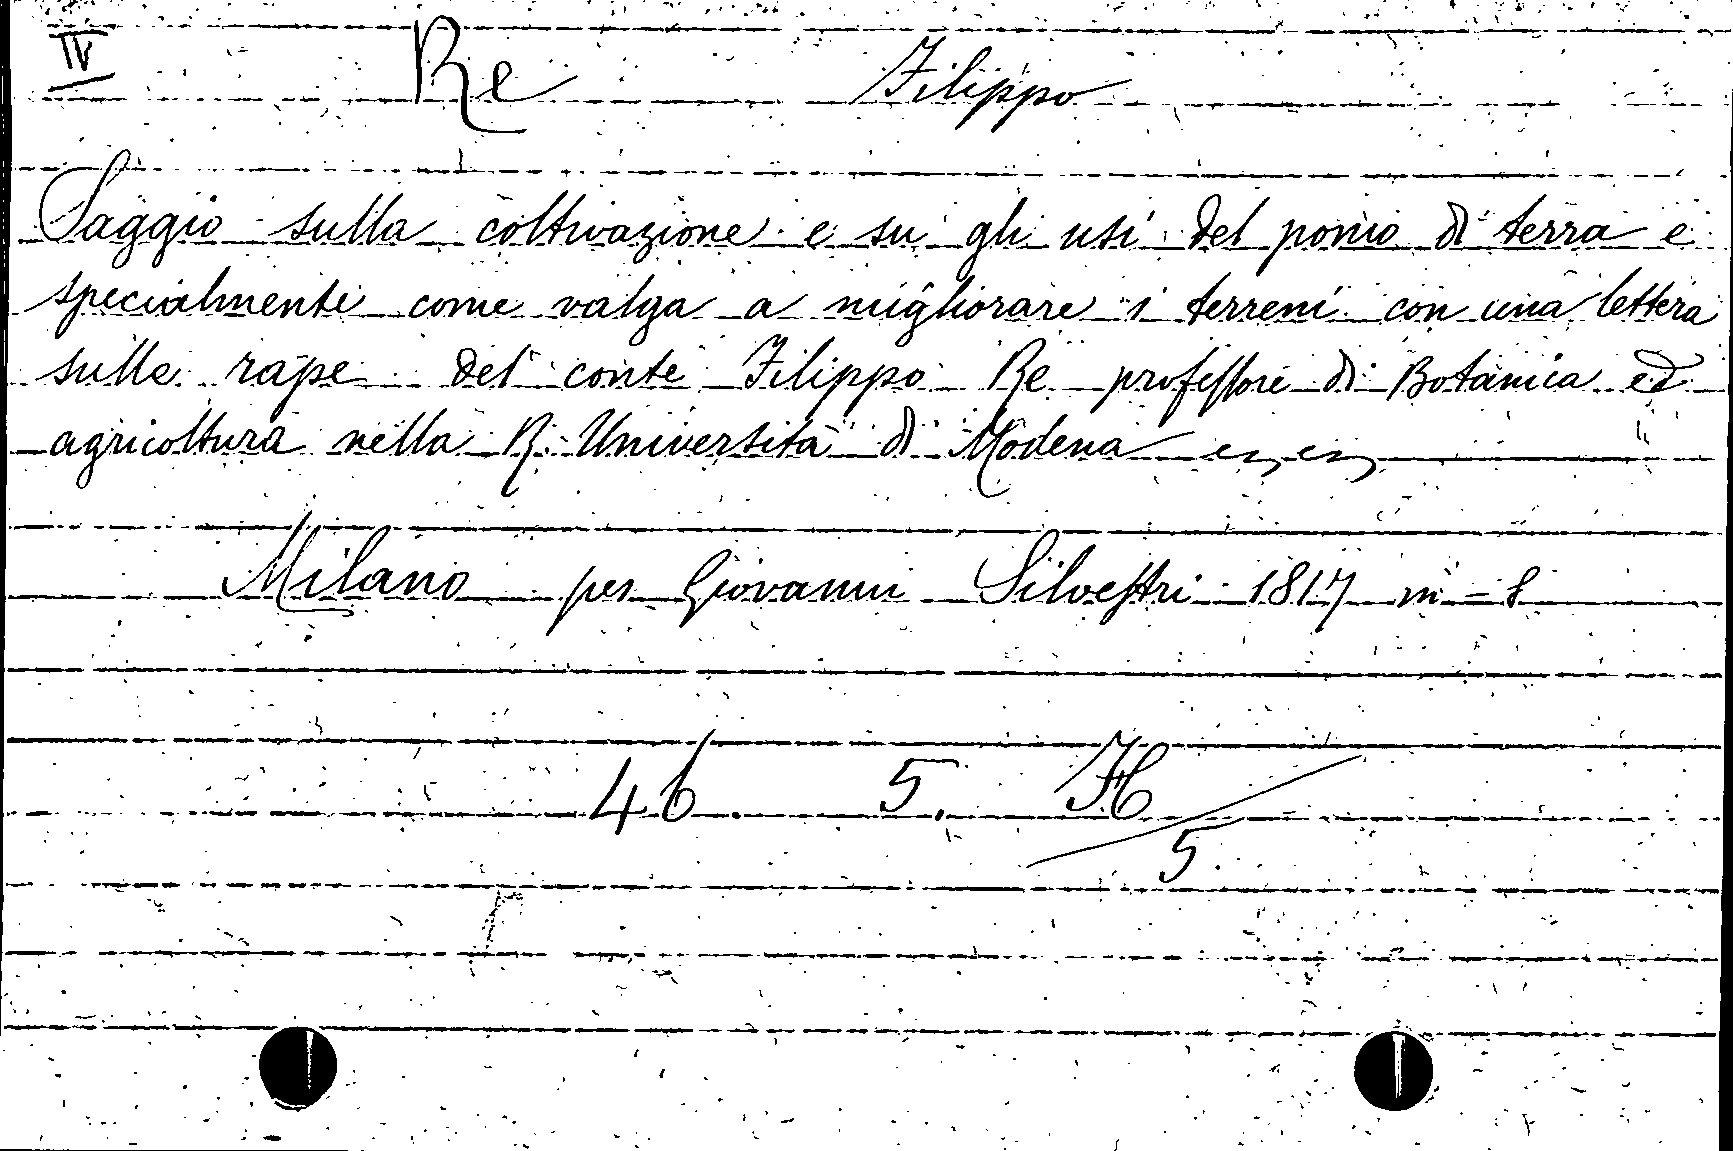 IV
Re Filippo
Saggio sulla coltivazione e su gli usi del pomo di terra e
specialmente come valga a migliorare i terreni con una lettera
sulle rape del conte Filippo Re professore di Botanica ed
agricoltura nella R. Università di Modena ec, ec,
Milano per Giovanni Silvestri 1817 in = 8
46. 5. H
5.